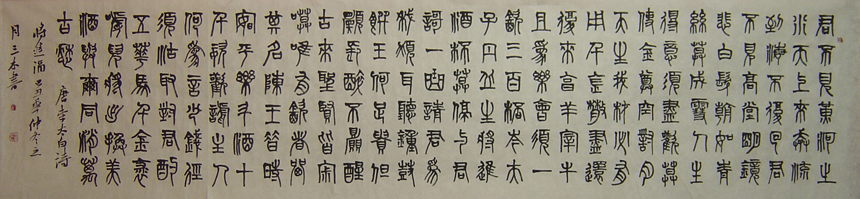 君不見黃河之
水天上來奔流
到海不復回君
不見高堂明鏡
悲白髮朝如青
絲暮成雪人生
得意須盡歡莫
使金尊空對月
天生我材必有
用千金散盡還
復來烹羊宰牛
且爲樂會須一
飲三百桮岑夫
子丹丘生將進
酒桮莫停與君
謌一曲請君爲
我傾耳聽鐘鼓
饌玉何足貴但
願長醉不願醒
古來聖賢皆寂
寞唯有飲者留
其名陳王昔時
宴平樂斗酒十
千恣歡謔主人
何爲言少錢徑
須沽取對君酌
五華馬千金裘
嘑兒將出換美
酒與爾同銷萬
古愁
唐李太白詩
將進酒 己丑 仲冬之
月三木書